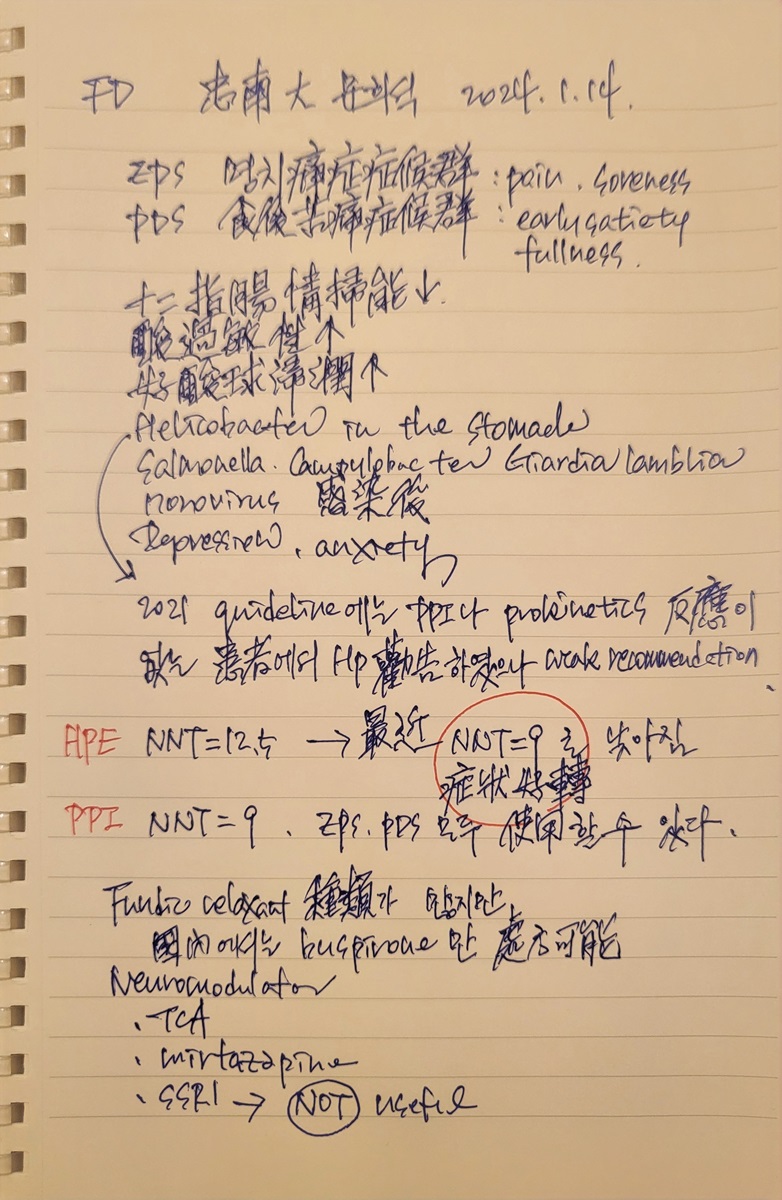 FD 忠南大 문희석 2024.1.14.
EPS 명치痛症症候群 : pain. soreness
PDS 食後苦痛症候群 : early satiety
fullness.
十二指腸 淸掃能↓.
酸過敏性↑
好酸球 浸潤↑
Helicobacter in the stomach
Salmonella. Campylobacter Giardia lamblia
Norovirus 感染後
Depression, anxiety
2021 guideline에는 PPI나 prokinetics 反應이
없는 患者에서 HP 勸告하였으나 weak recommendation.
HPE NNT=12.5 → 最近 NNT=9로 낮아짐
症狀好轉
PPI NNT=9. EPS. PDS 모두 使用할 수 있다.
Fundic relaxant 種類가 많지만,
國內에서는 buspirone만 處方可能
Neuromodulator
. TCA
. mirtazapine
. SSRI → NOT useful